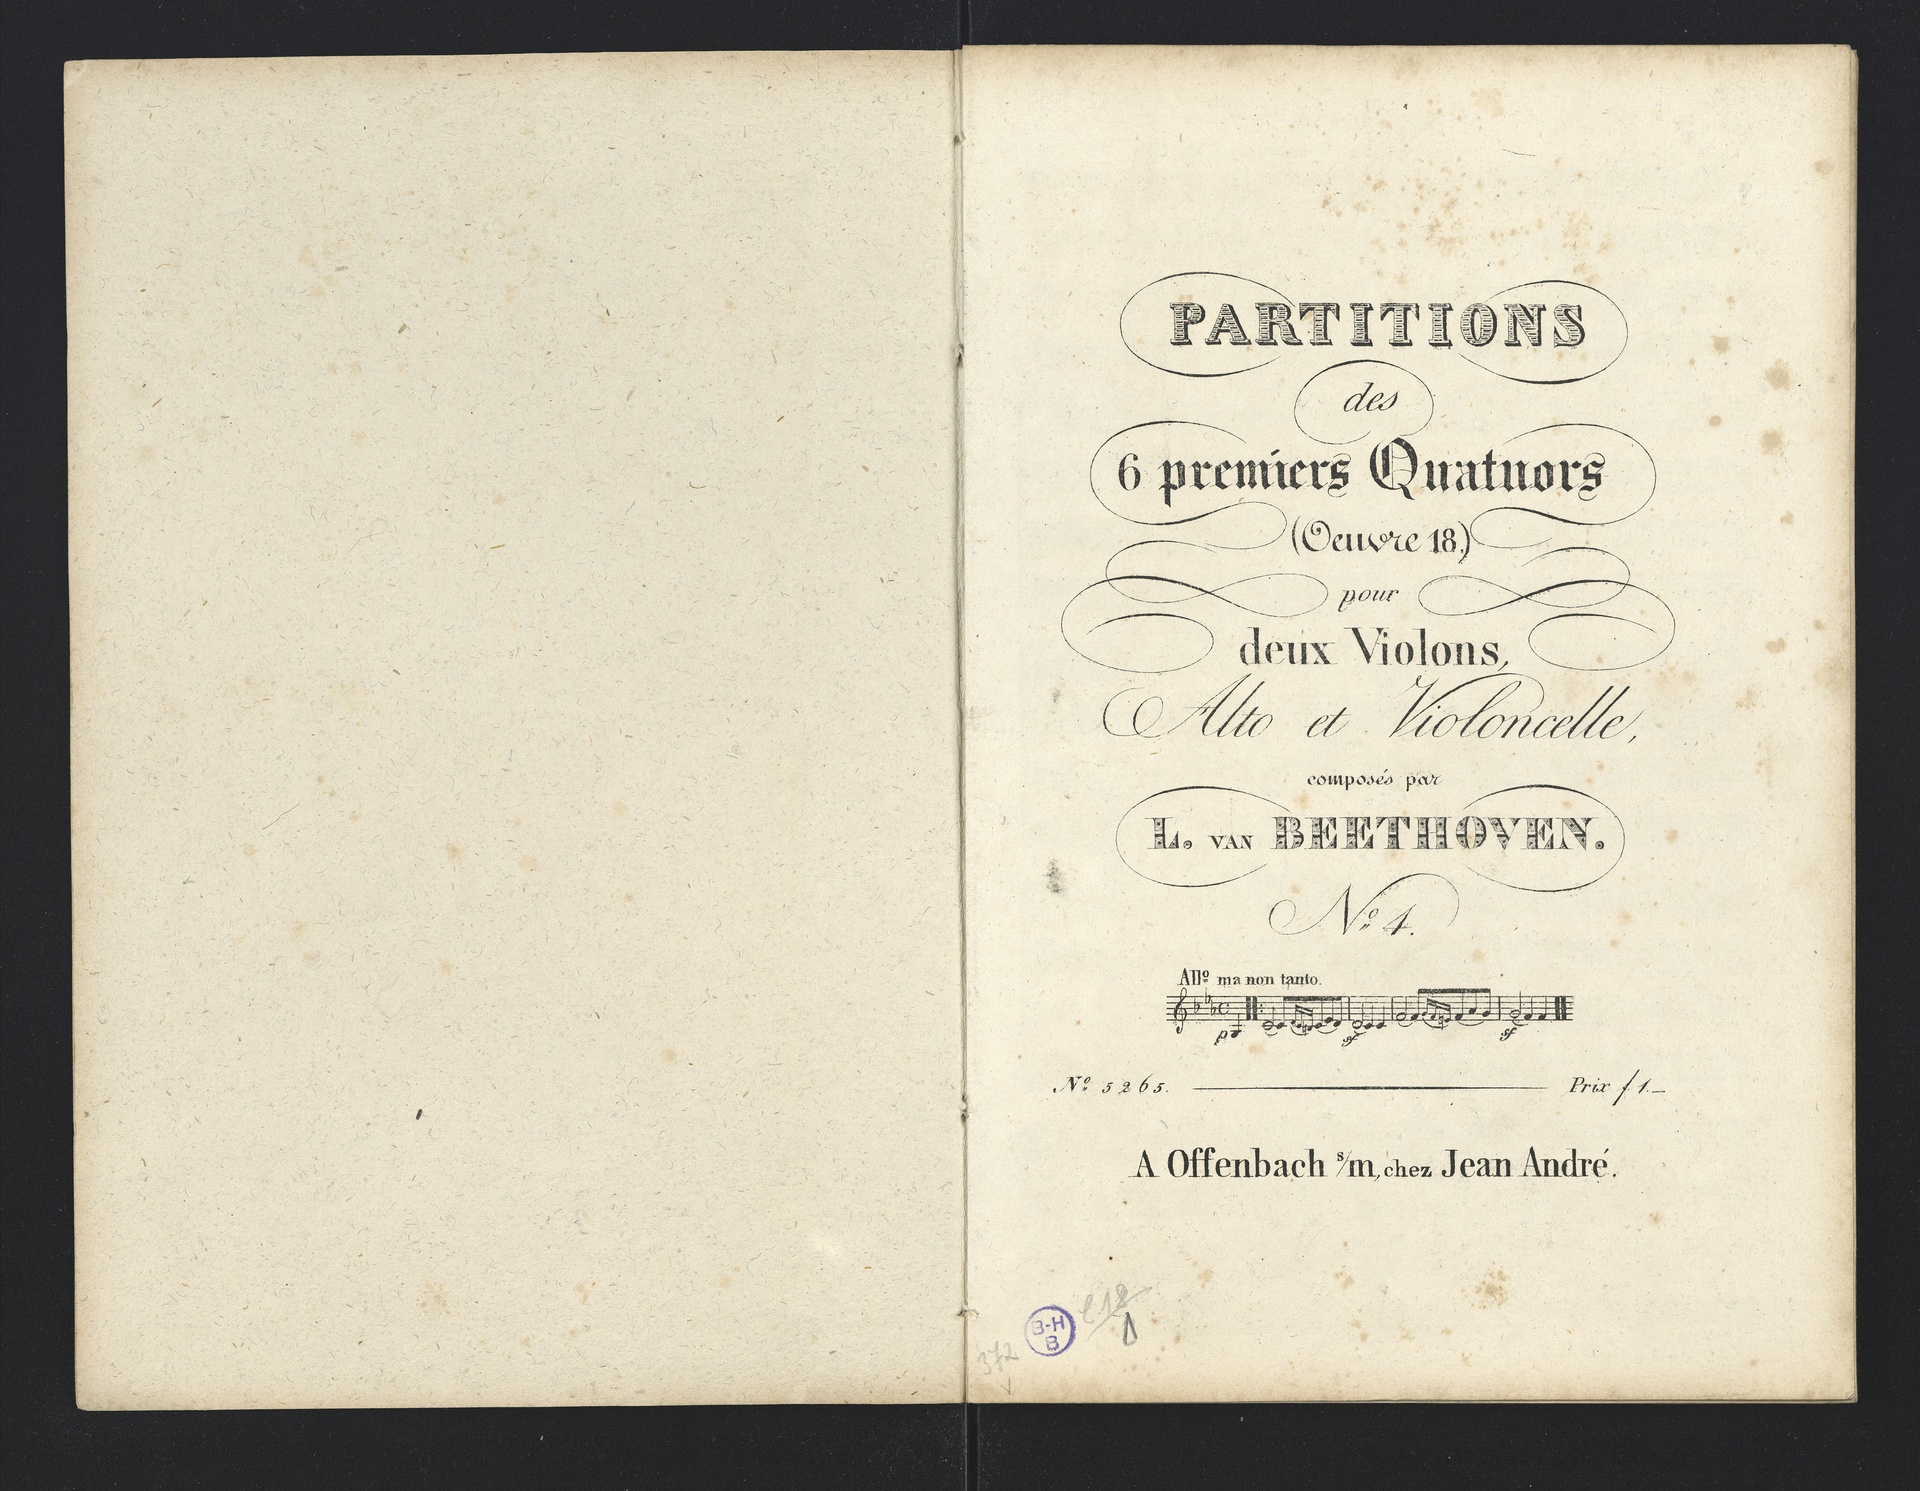 PARTITIONS
des
6 premiers Quatuors
(Oeuvre 18.)
pour
deux Violons,
Alto et Violoncelle,
composés par
L. VAN BEETHOVEN.
Nº 4.
Allº ma non tanto.
p
sf
sf
Nº 5265. Prix f 1.—
A Offenbach s/m, chez Jean André.
B-H
B
372